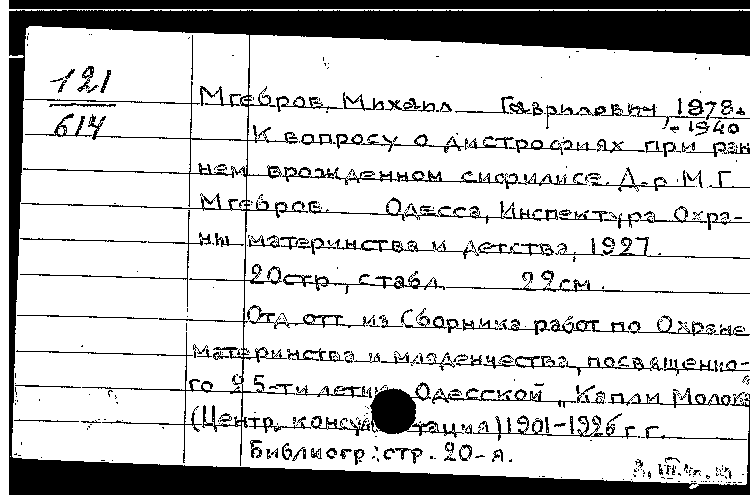 121
614
Мгебров, Михаил Гаврилович, 1878-
-1940
К вопросу о дистрофиях при ран
нем врожденном сифилисе. Д-р М.Г.
Мгебров. Одесса, Инспектура Охра-
ны материнства и детства, 1927.
20стр., с табл. 22см.
Отд. отт. из Сборника работ по Охране
материнства и младенчества, посвященно-
го 25-ти летию Одесской „Капли Молока
(Центр. консультация) 1901-1926 г.г.
Библиогр: стр. 20-я.